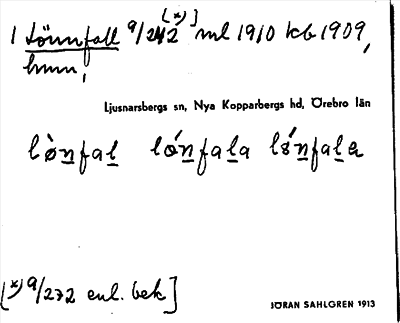 [*)]
1 Lönnfall 9/242 ml 1910 kb 1909,
hmn,
Ljusnarsbergs sn, Nya Kopparbergs hd, Örebro län
lø̀nfal lǿnfala lǿnfala
[*) 9/272 enl. bek]
JÖRAN SAHLGREN 1913